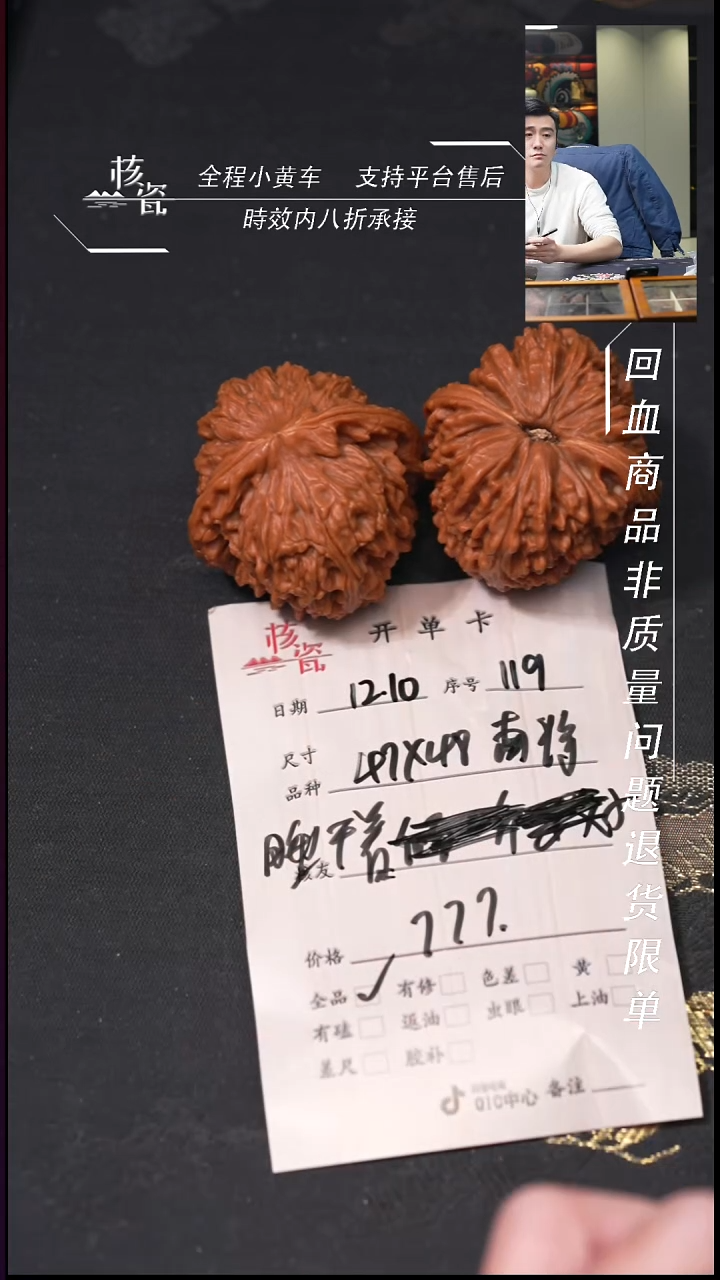 核瓷
全程小黄车 支持平台售后
時效内八折承接
回血商品非质量问题退货限单
核瓷
开单卡
日期 12-10 序号 119
尺寸
品种 47X48 南将
友
价格 777.
全品 ✓ 有修 色差 黄
有磕 返油 虫眼 上油
差尺 胶补
QIC中心 备注